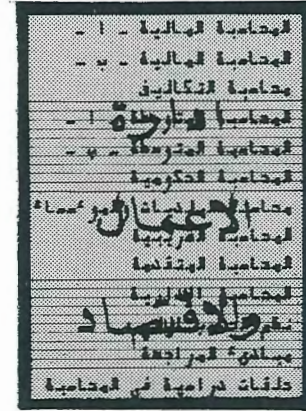 المحاسبة المالية - ا -
المحاسبة المالية - ب -
محاسبة التكاليف
المحاسبة المتوسطة - ا -
المحاسبة المتوسطة - ب -
المحاسبة الحكومية
محاسبة
المحاسبة الضريبية
المحاسبة المتقدمة
المحاسبة الادارية
نظم
مبادىء المراجعة
حلقات دراسية في المحاسبة
ادارة
الاعمال
والاقتصاد